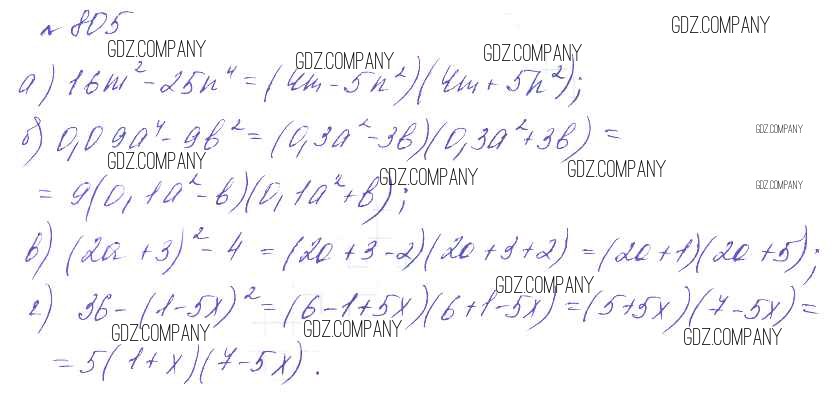 № 805
GDZ.COMPANY GDZ.COMPANY GDZ.COMPANY GDZ.COMPANY
а) 16m² - 25n⁴ = (4m - 5n²)(4m + 5n²);
б) 0,09a⁴ - 9b² = (0,3a² - 3b)(0,3a² + 3b) =
GDZ.COMPANY
GDZ.COMPANY GDZ.COMPANY GDZ.COMPANY GDZ.COMPANY
= 9(0,1a² - b)(0,1a² + b);
в) (2a + 3)² - 4 = (2a + 3 - 2)(2a + 3 + 2) = (2a + 1)(2a + 5);
GDZ.COMPANY
г) 36 - (1 - 5x)² = (6 - 1 + 5x)(6 + 1 - 5x) = (5 + 5x)(7 - 5x) =
GDZ.COMPANY GDZ.COMPANY GDZ.COMPANY
= 5(1 + x)(7 - 5x).